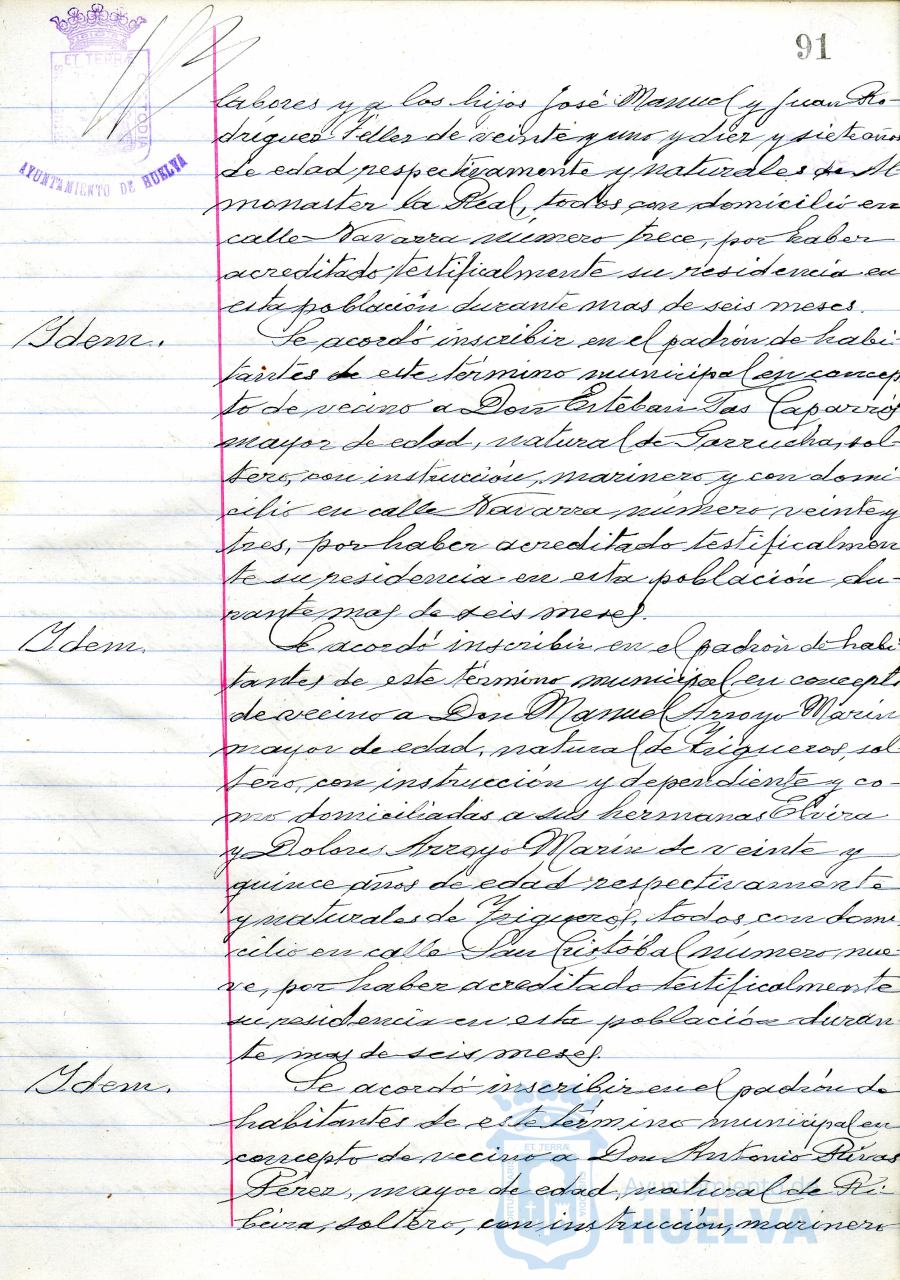 91
ET TERRÆ
AYUNTAMIENTO DE HUELVA
labores y a los hijos José Manuel y Juan Ro-
dríguez Téllez de veinte y uno y diez y siete años
de edad respectivamente y naturales de Al-
monaster la Real, todos con domicilio en
calle Navarra número trece, por haber
acreditado testificalmente su residencia en
esta población durante mas de seis meses.
Idem.
Se acordó inscribir en el padrón de habi-
tantes de este término municipal en concep
to de vecino a Don Esteban Tas Caparrós
mayor de edad, natural de Garrucha, sol-
tero, con instrucción, marinero y con domi
cilio en calle Navarra número veinte y
tres, por haber acreditado testificalmen
te su residencia en esta población du-
rante mas de seis meses.
Idem.
Se acordó inscribir en el padrón de habi
tantes de este término municipal en concepto
de vecino a Don Manuel Arroyo Marin
mayor de edad, natural de Trigueros, sol
tero, con instrucción y dependiente y co-
mo domiciliadas a sus hermanas Elvira
y Dolores Arroyo Marin de veinte y
quince años de edad respectivamente
y naturales de Trigueros, todos con domi
cilio en calle San Cristóbal número nue-
ve, por haber acreditado testificalmente
su residencia en esta población duran-
te mas de seis meses.
Idem.
Se acordó inscribir en el padrón de
habitantes de este término municipal en
concepto de vecino a Don Antonio Rivas
Pérez, mayor de edad, natural de Ri-
beira, soltero, con instrucción, marinero
ET TERRÆ
Ayuntamiento de
HUELVA